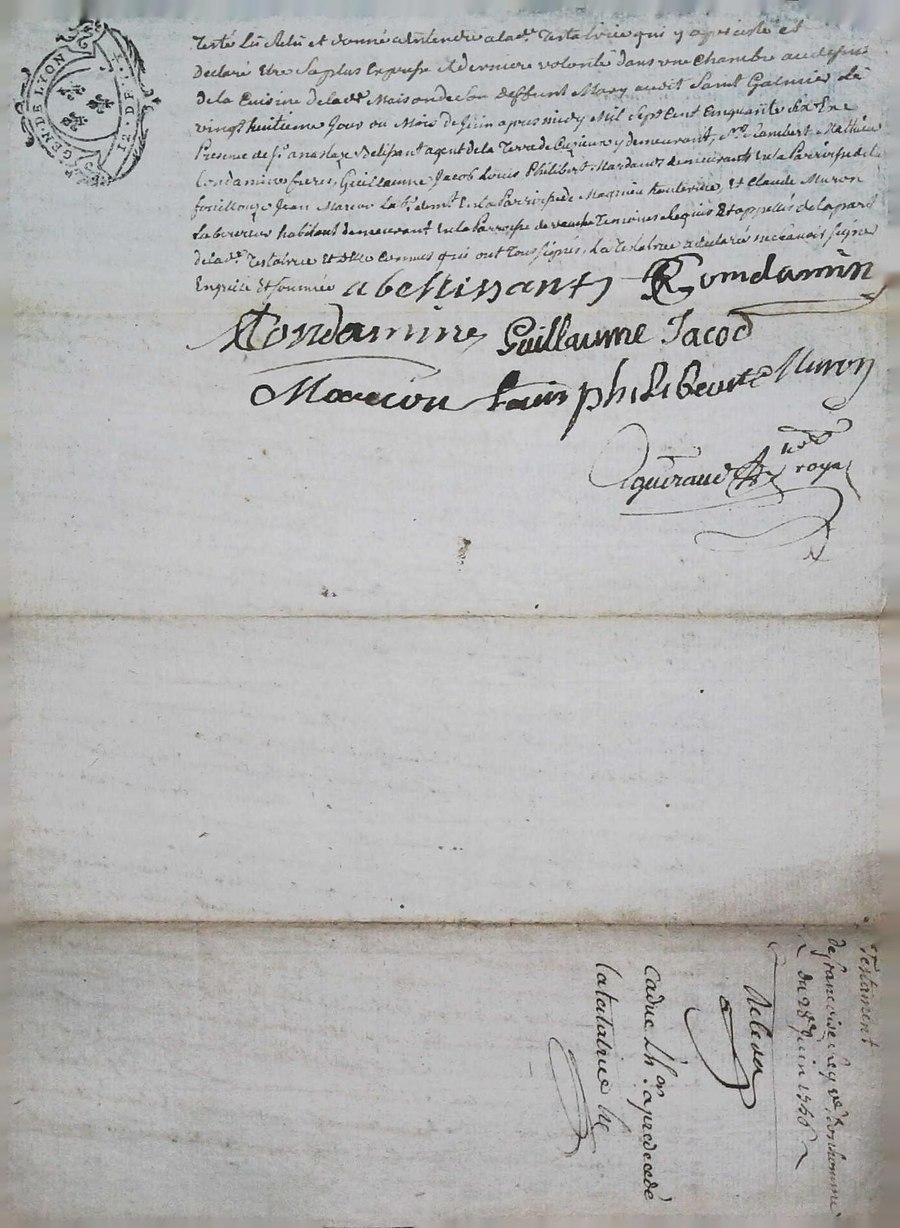 GEN. DE LYON
testé Lû Relû et donné a Entendre a lad.e Testatrice qui y a persisté et
Declaré Etre Sa plus Expresse et derniere volonté dans une Chambre au dessus
de la Cuisine de lad.e Maison de son deffunt Mary audit Saint Galmier Le
vingt huitieme Jour du Mois de Juin apres midy Mil Sept Cent Cinquante Six En
Presence de S.r anastaze Belissant agent de la Terre de Cuzieu y demeurant, Lambert Mathieu
Condamine freres, Guillaume Jacob Louis Philibert Mardaud demeurants En la Parroisse de la
fouillouze Jean Marcou demt En la Parroisse de et Claude Muron
Laboureur habitant demeurant En la Parroisse de Temoins Requis Et appellés de la part
de lad.e Testatrice Et Connus qui ont Tous signés, La Testatrice a declaré ne scavoir signer
Enquise Et sommée abellissant Condamin
Condamine Guillaume Jacod
Marcou Louis philibert Muron
roya
Testament
de francoise v.e bonhomme
du 28.e Juin 1756
Relevé
Caduc L'h.er a predecedé
la testatrice